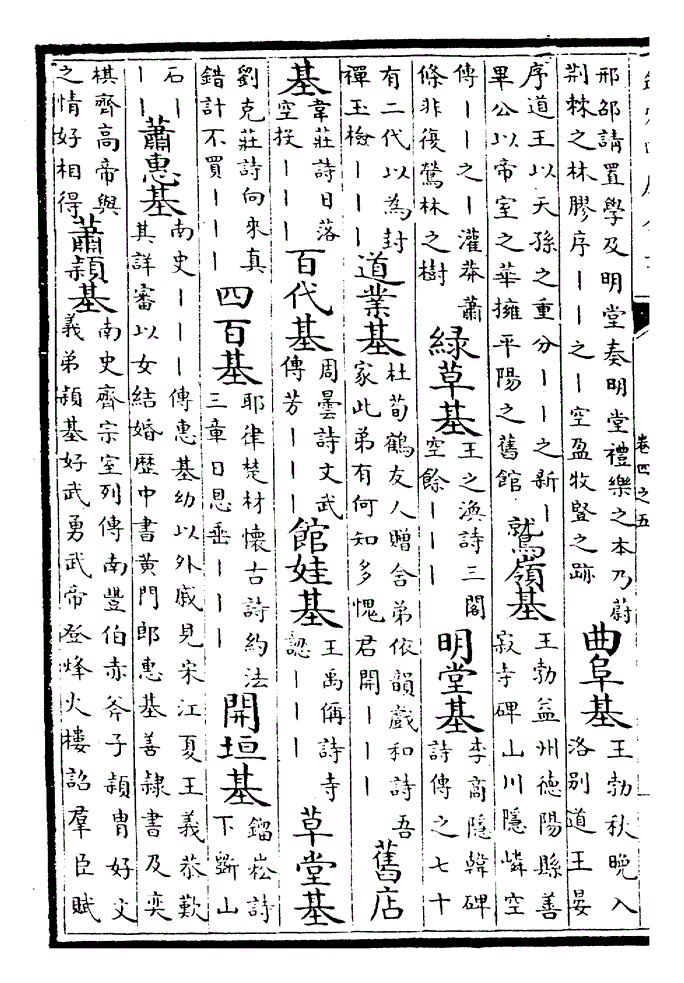 卷四之五
邢邵請置學及明堂奏明堂禮樂之本乃蔚
荆棘之林膠序——之—空盈牧豎之跡
曲阜基
王勃秋晚入
洛别道王晏
序道王以天孫之重分——之新—
畢公以帝室之華擁平陽之舊館
鷲嶺基
王勃益州德陽縣善
寂寺碑山川隱嶙空
傳——之—灌莽蕭
條非復鶖林之樹
緑草基
王之渙詩三閣
空餘———
明堂基
李商隱韓碑
詩傳之七十
有二代以為封
禪玉檢———
道業基
杜荀鶴友人贈舍弟依韻戲和詩吾
家此弟有何知多愧君開———
舊店
基
韋莊詩日落
空投———
百代基
周曇詩文武
傳芳———
館娃基
王禹偁詩寺
認———
草堂基
劉克莊詩向來真
錯計不買———
四百基
耶律楚材懷古詩約法
三章日恩垂———
開垣基
鎦崧詩
下斵山
石—
——
蕭惠基
南史———傳惠基幼以外戚見宋江夏王義恭歎
其詳審以女結婚歷中書黄門郎惠基善隸書及奕
棋齊高帝與
之情好相得
蕭穎基
南史齊宗室列傳南豐伯赤斧子穎胄好文
義弟穎基好武勇武帝登烽火樓詔羣臣賦